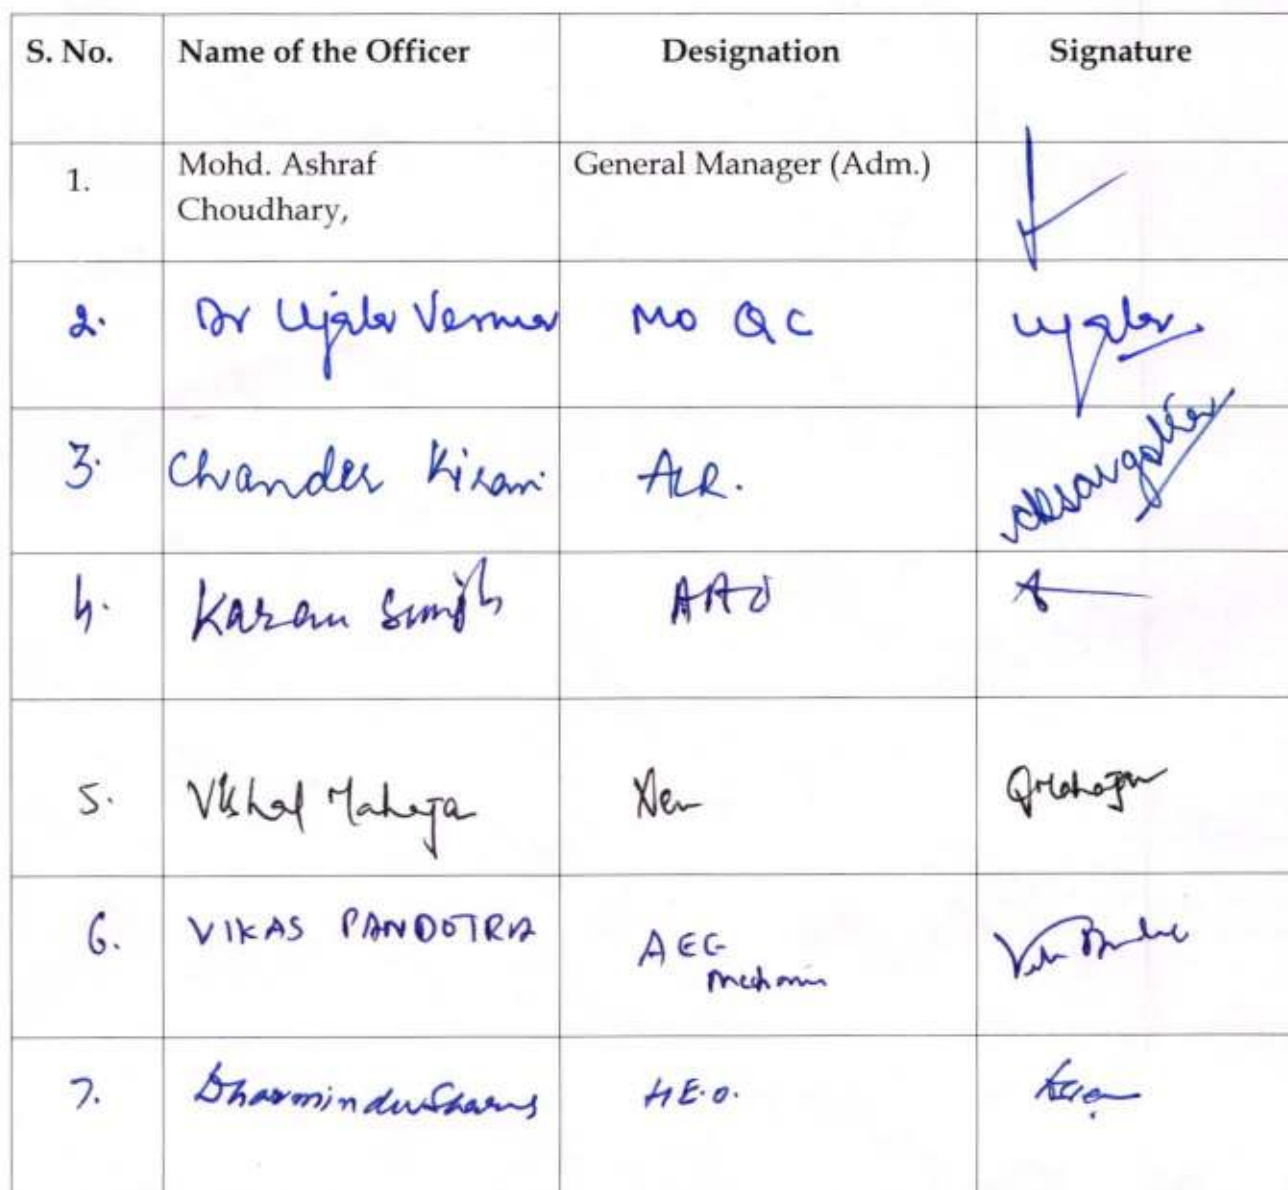 S. No. Name of the Officer Designation Signature
1. Mohd. Ashraf General Manager (Adm.)
Choudhary,
2. Dr Ujala Verma MO QC Ujala
3. Chander Kiran
4. Karan Singh AAO
5. Vishal Mahaja Mahajan
6. VIKAS PANDOTRA AEE
Mechanic
7. Dharminder Sharma H.E.O.